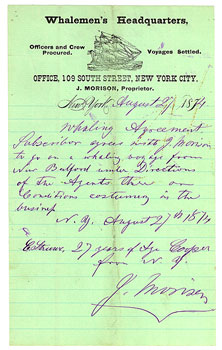 Whalemen's Headquarters,
Officers and Crew
Procured.
Voyages Settled.
OFFICE, 109 SOUTH STREET, NEW YORK CITY.
J. MORISON, Proprietor.
New York August 27 1874
Whaling Agreement
Subscriber agrees with J. Morison
to go on a whaling voyage from
New Bedford under Directions
of the Agents there on
Conditions customary in the
business
N. Y. August 27th 1874
27 years of Age Cooper
from N. Y.
J. Morison